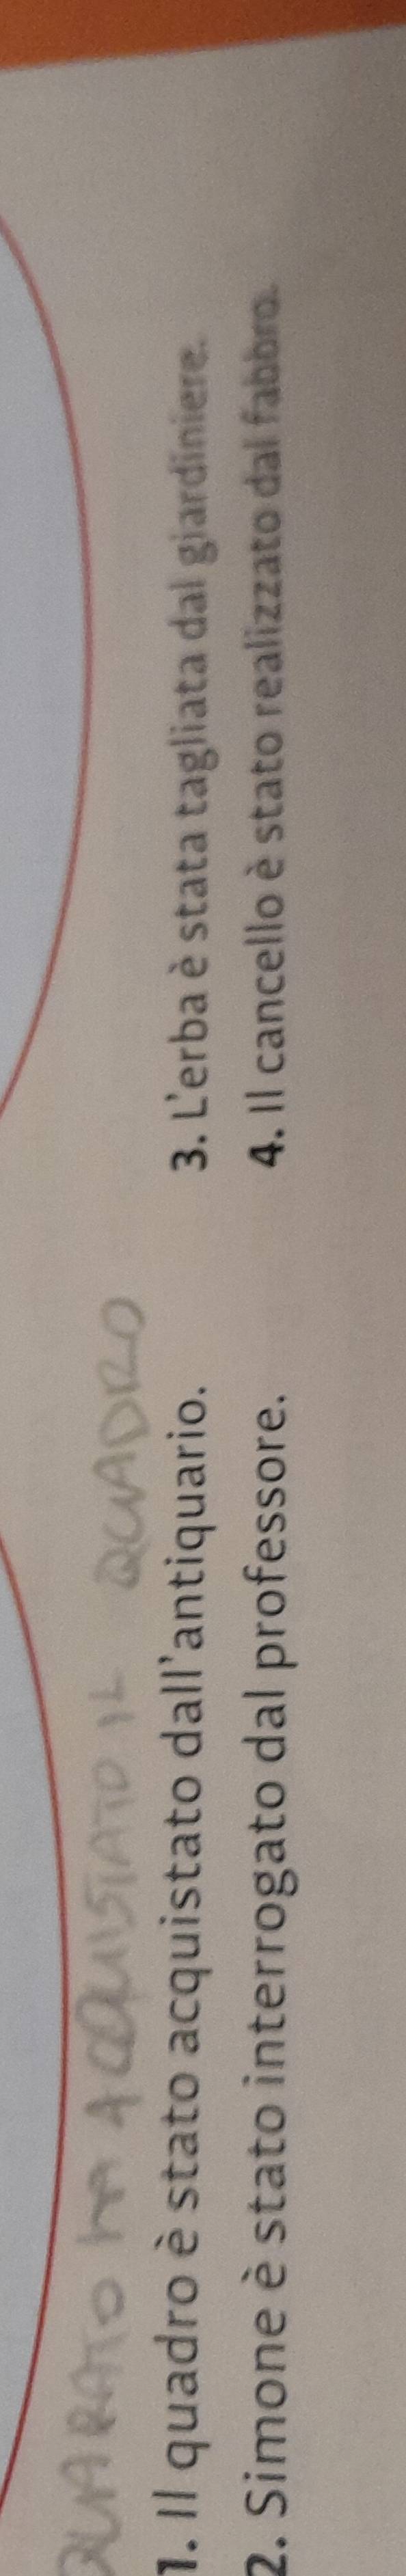 QUARATO HA ACQUISTATO IL QUADRO
1. Il quadro è stato acquistato dall'antiquario.
2. Simone è stato interrogato dal professore.
3. L'erba è stata tagliata dal giardiniere.
4. Il cancello è stato realizzato dal fabbro.